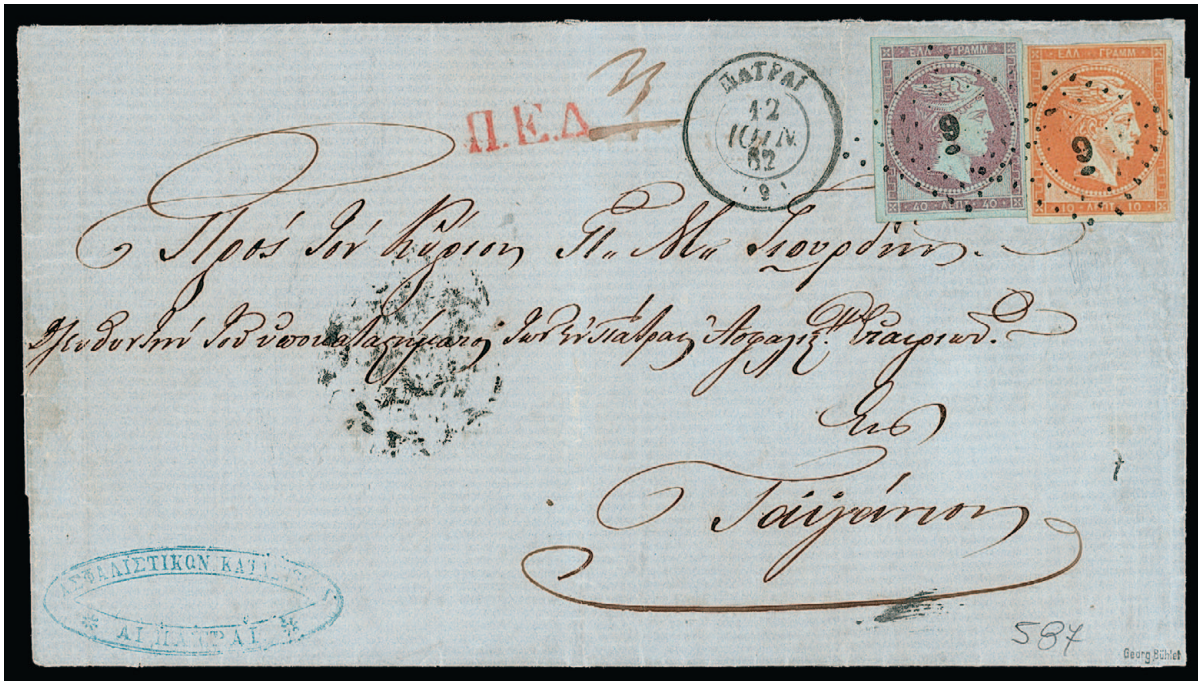 Π.Ε.Δ
ΠΑΤΡΑΙ
12
ΙΟΥΝ
62
(9)
ΕΛΛ ΓΡΑΜΜ
9
40 ΛΕΠΤ 40
ΕΛΛ ΓΡΑΜΜ
9
10 ΛΕΠΤ 10
Πρὸς τὸν Κύριον Π. Μ.
Διευθυντὴν τοῦ ὑποκαταστήματος τῶν ἐν Πάτραις Ἀσφαλισ. Ἑταιριῶν.
Εἰς
Ταϊγάνιον
ΑΣΦΑΛΙΣΤΙΚΩΝ
ΑΙ ΠΑΤΡΑΙ
587
Georg Bühler